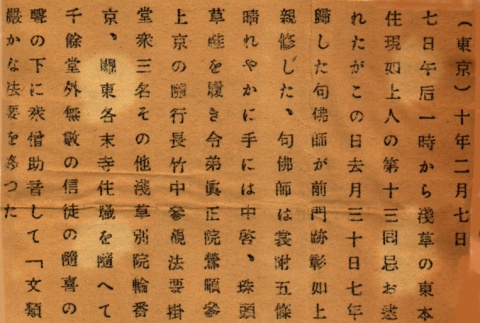 (東京)十年二月七日
七日午后一時から淺草の東本
住現如上人の第十三囘忌お逮
れたがこの日去月三十日七年
歸した句佛師が前門跡彰如上
親修した、句佛師は裳附五條
晴れやかに手には中啓、珠頭
草鞋を履き令弟眞正院瑩韻參
上京の隨行長竹中參視法要掛
堂衆三名その他淺草別院輪番
京、關東各末寺住職を隨へて
千餘堂外無數の信徒の隨喜の
聲の下に衆僧助音して「文類
嚴かな法要を了つた